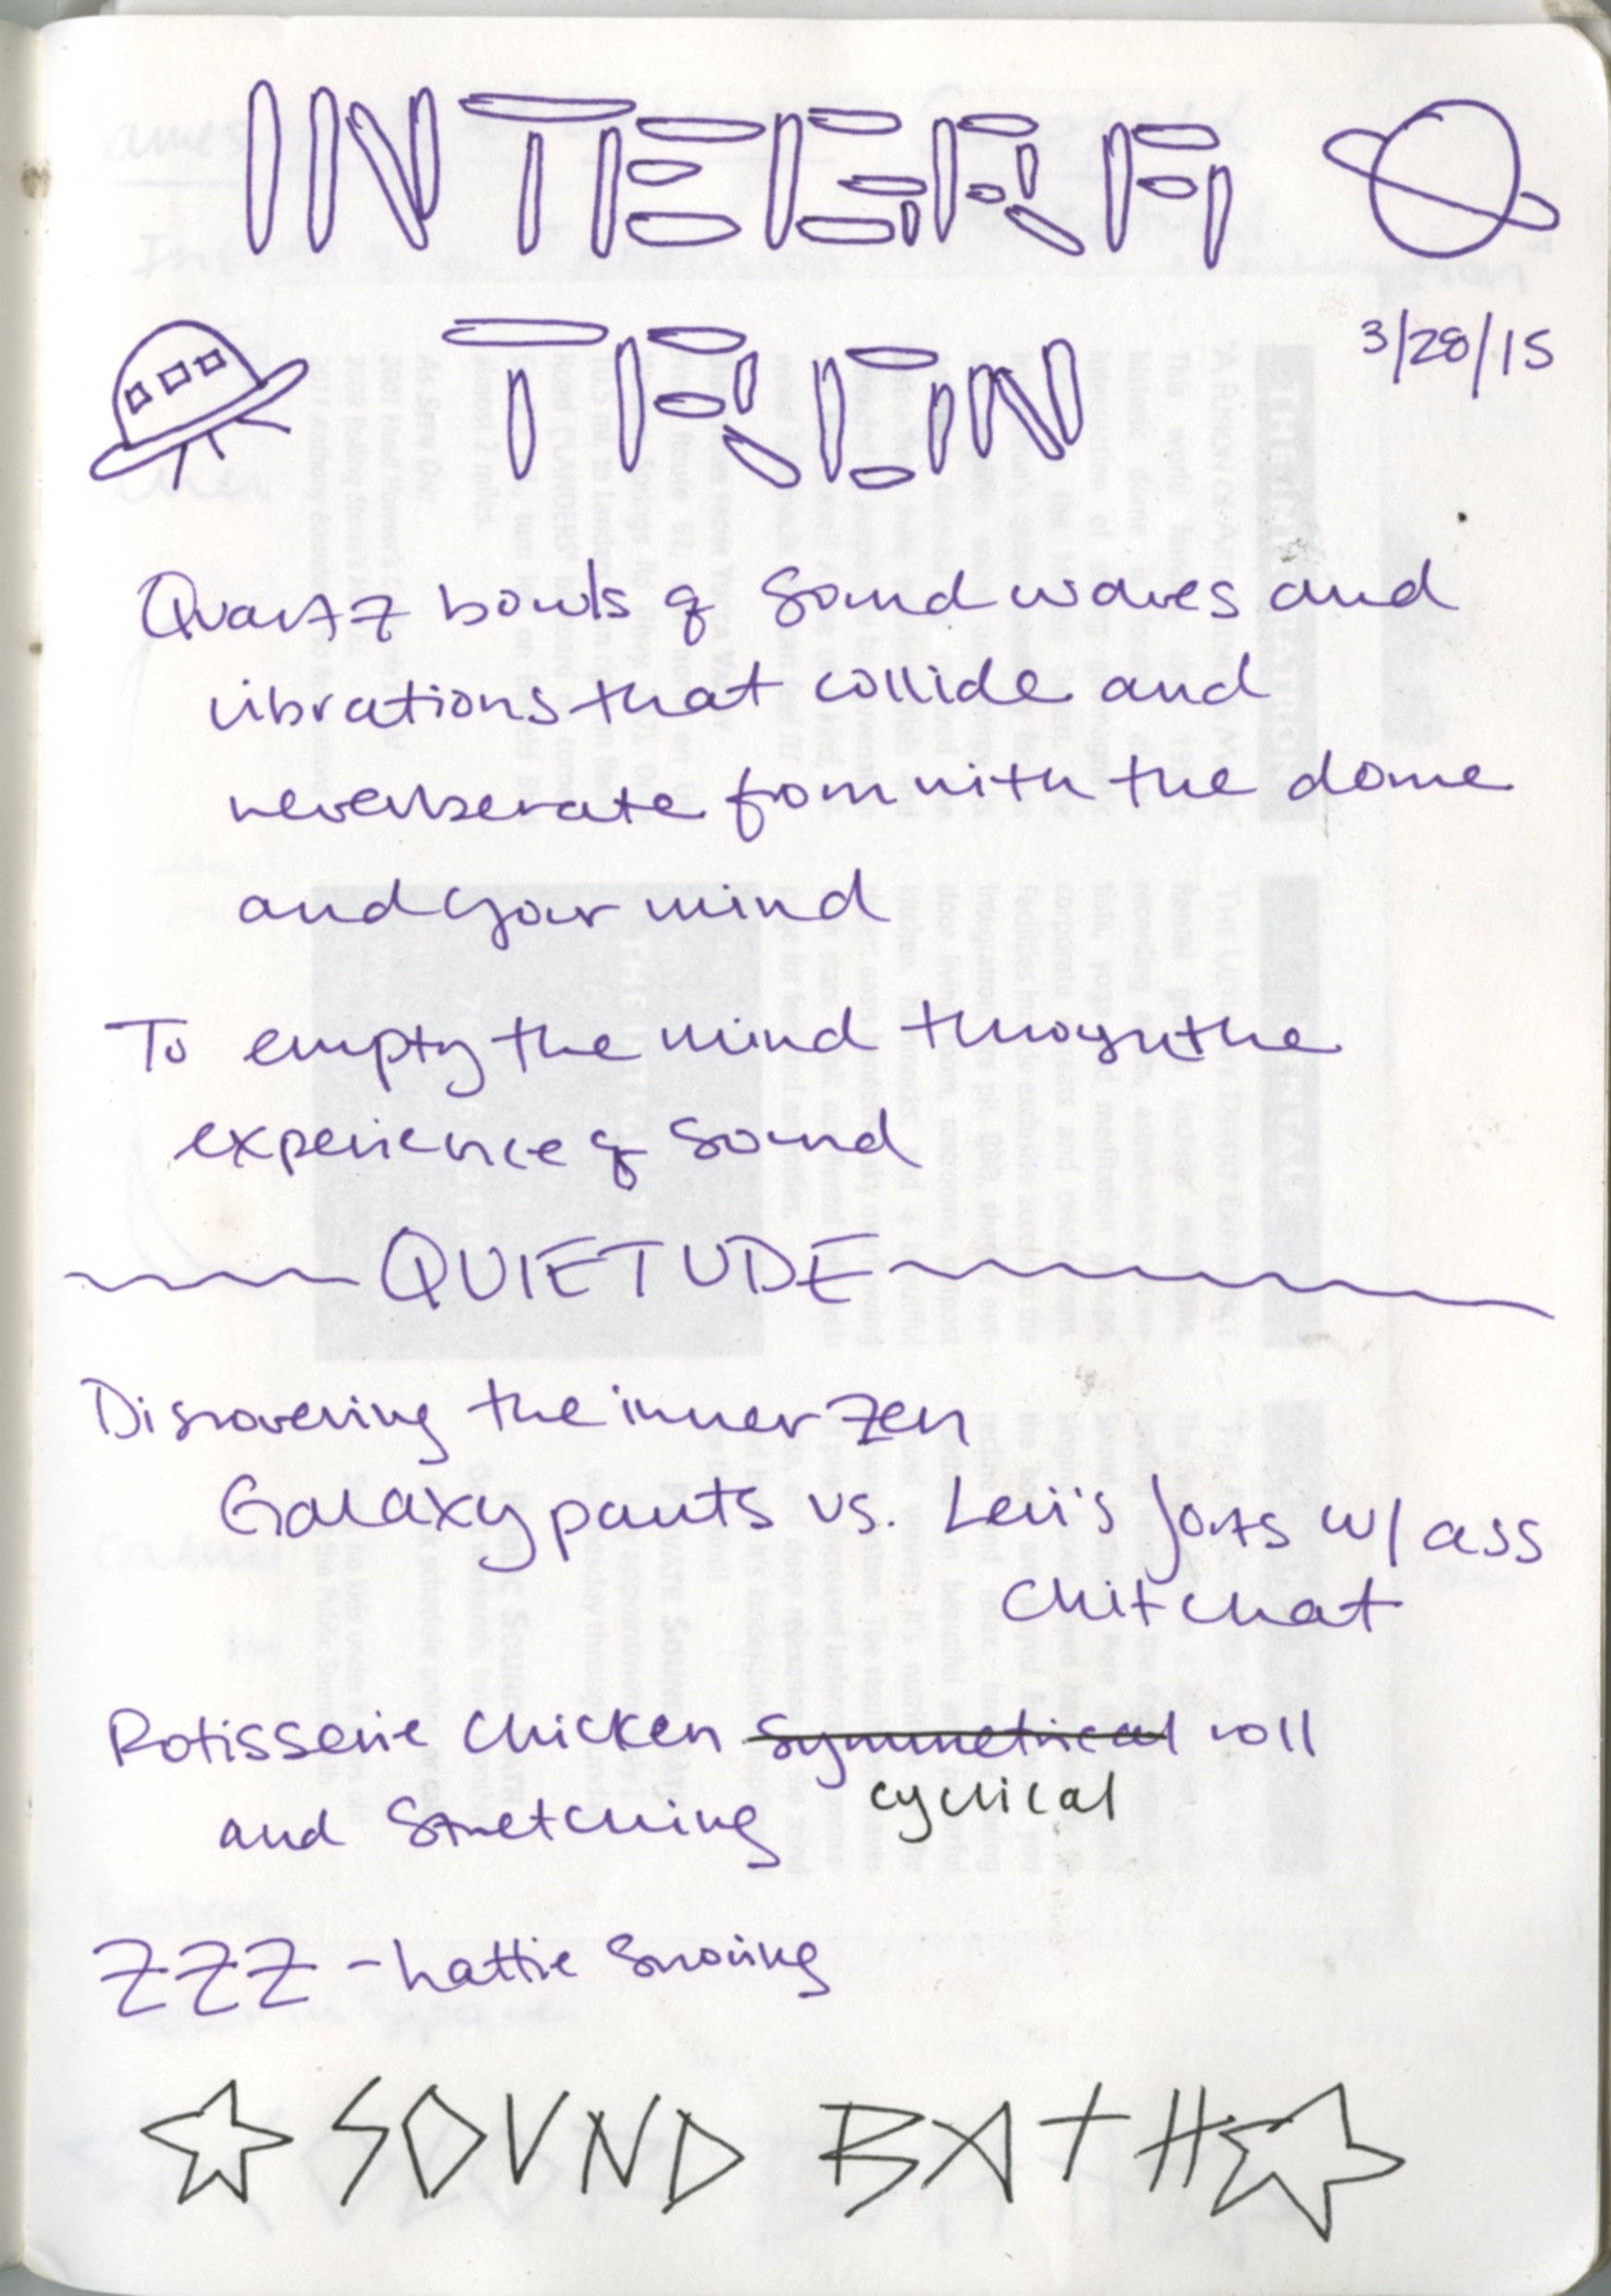 INTEGRA
TRON
3/28/15
Quartz bowls of Sound waves and
vibrations that collide and
reverberate from with the dome
and your mind
To empty the mind through the
experience of sound
QUIETUDE
Discovering the inner Zen
Galaxy pants vs. Levi's Jorts w/ ass
Chitchat
Rotisserie Chicken symmetrical roll
cyclical
and Stretching
ZZZ - hattie Snoring
SOUND BATH